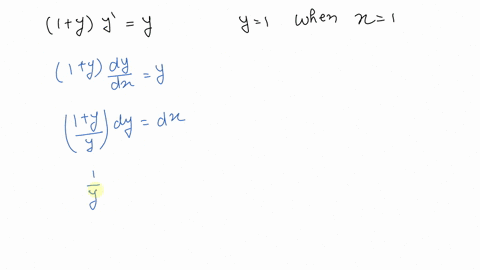 (1+y) y' = y    y=1 when x=1
(1+y) dy/dx = y
((1+y)/y) dy = dx
1/y